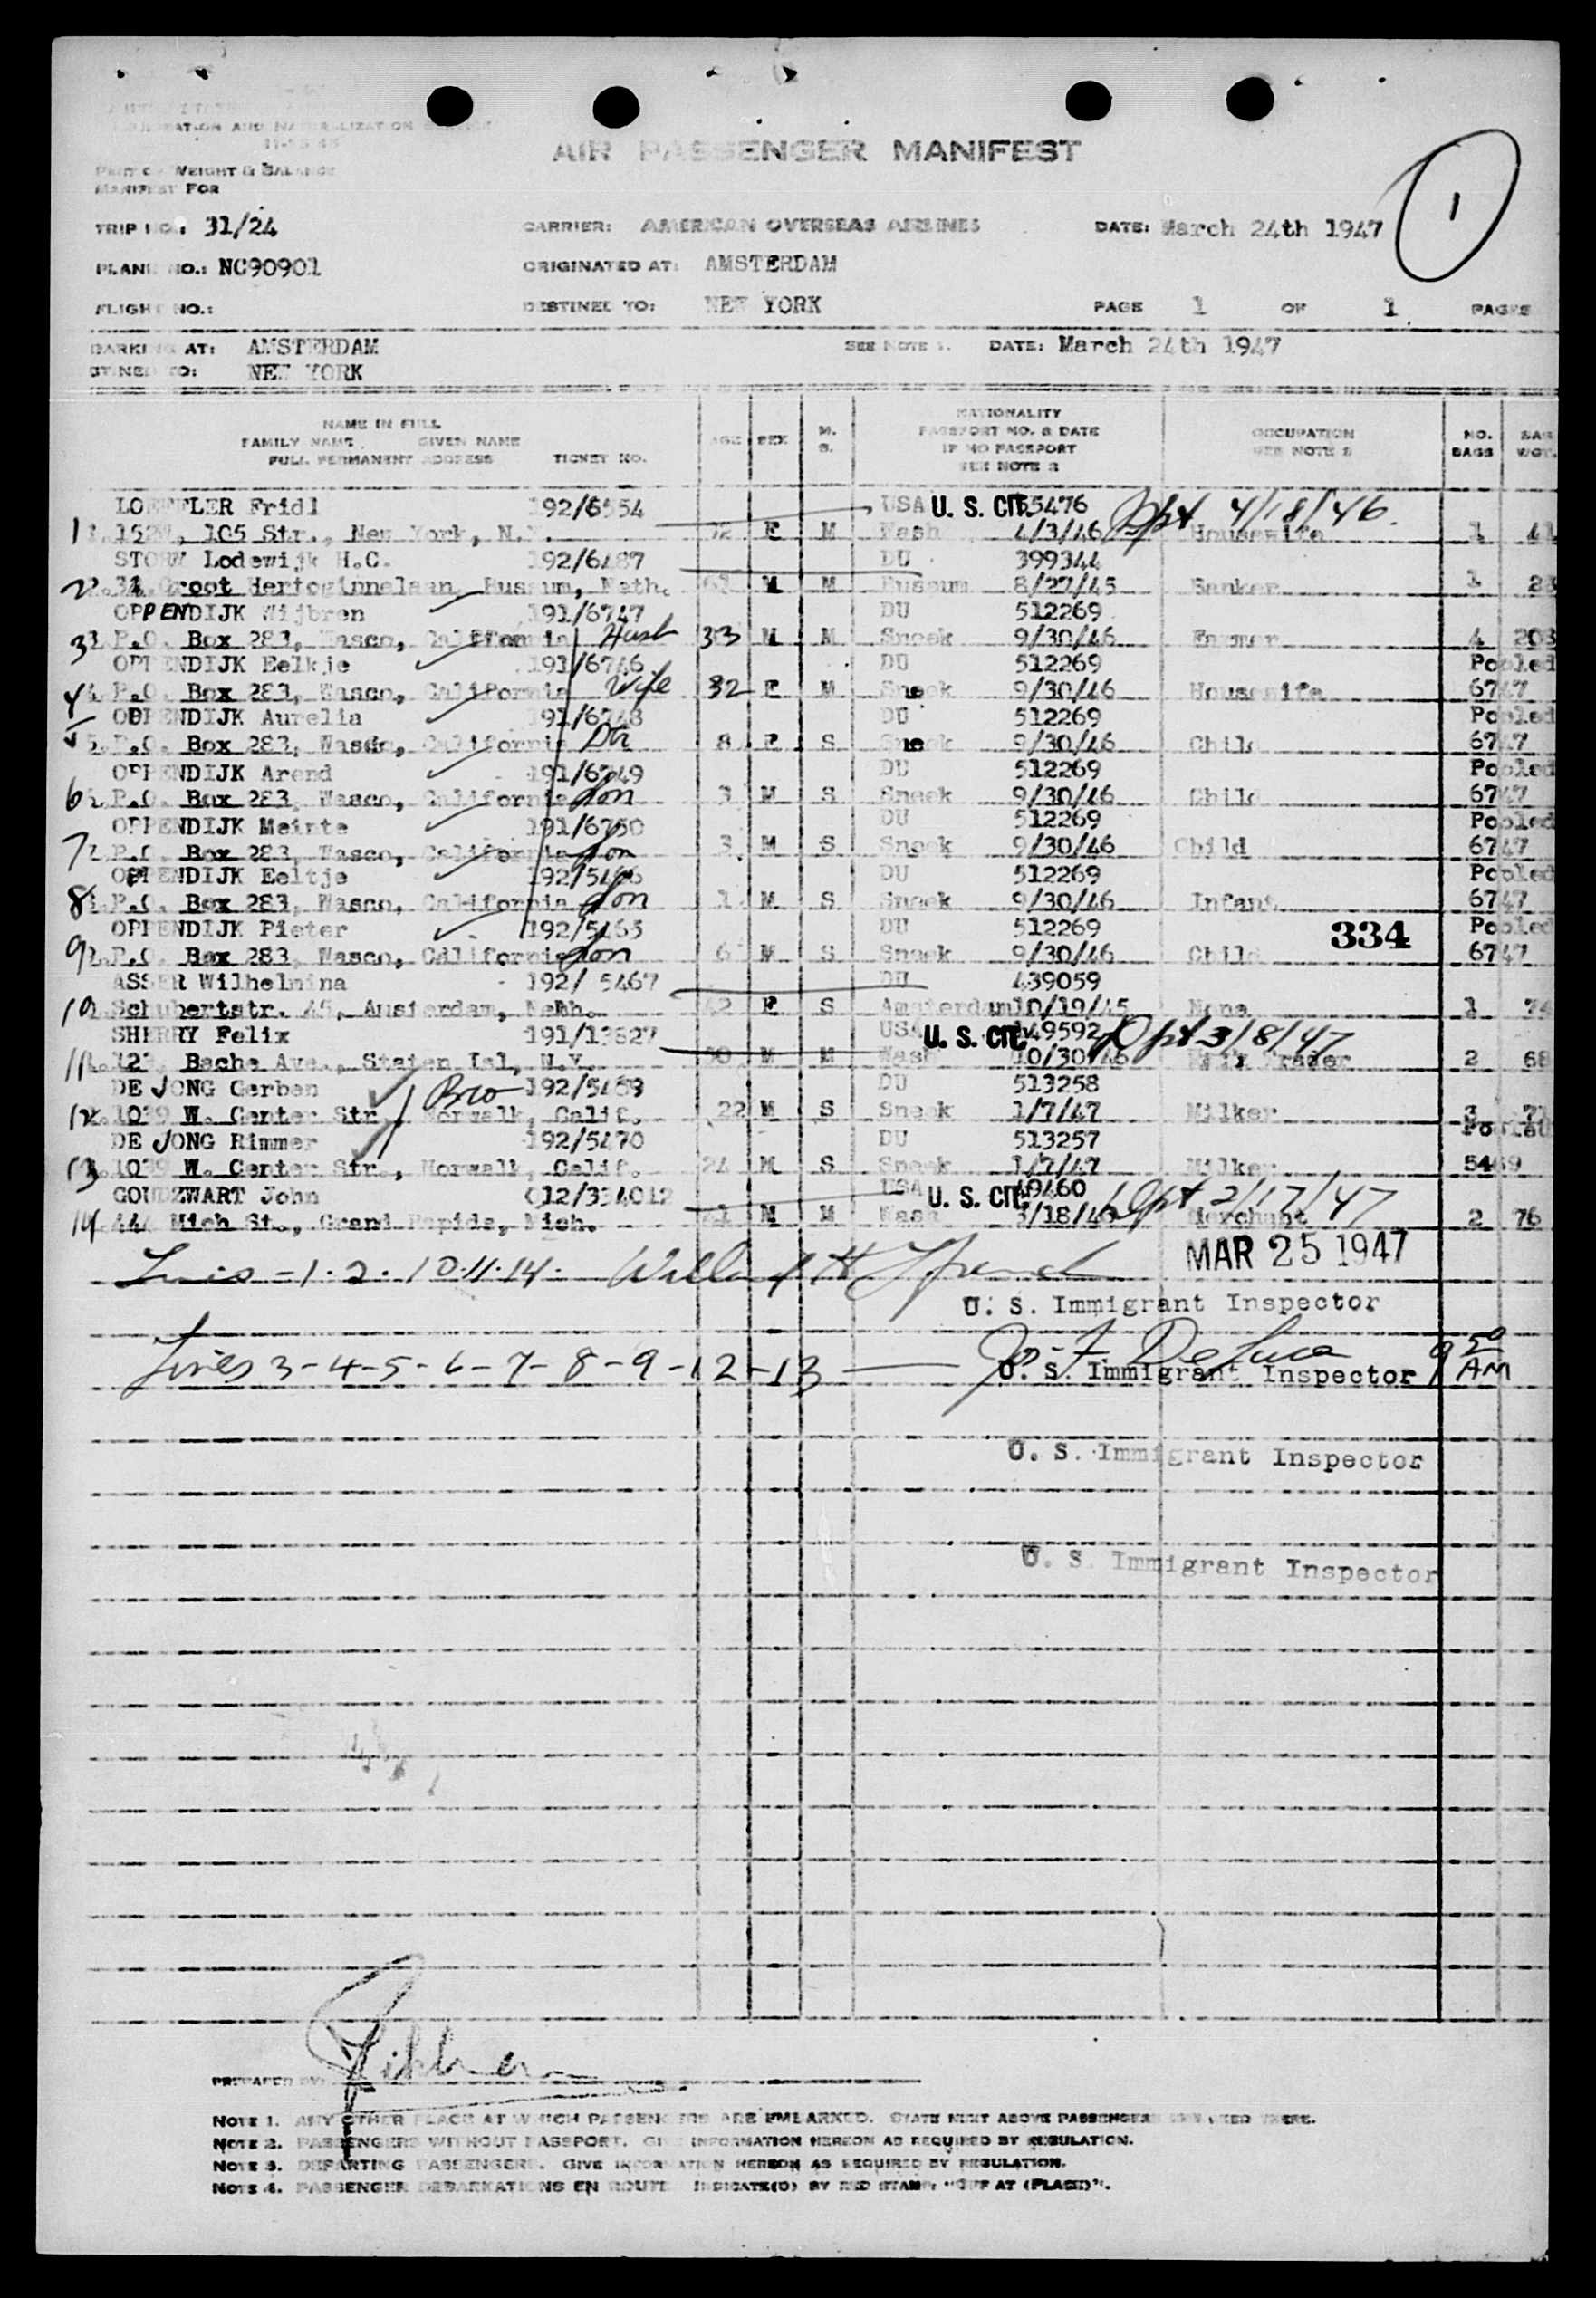 IMMIGRATION AND NATURALIZATION SERVICE
PART OF WEIGHT & BALANCE
MANIFEST FOR
AIR PASSENGER MANIFEST
1
TRIP NO.: 31/24 CARRIER: AMERICAN OVERSEAS AIRLINES DATE: March 24th 1947
PLANE NO.: NC90901 ORIGINATED AT: AMSTERDAM
FLIGHT NO.: DESTINED TO: NEW YORK PAGE 1 OF 1 PAGES
BARKING AT: AMSTERDAM SEE NOTE 1. DATE: March 24th 1947
STINED TO: NEW YORK
NAME IN FULL
FAMILY NAME GIVEN NAME
FULL PERMANENT ADDRESS TICKET NO.
AGE SEX M. S.
NATIONALITY
PASSPORT NO. & DATE
IF NO PASSPORT
SEE NOTE 2
OCCUPATION
SEE NOTE 2
NO. BAGS
BAG WGT.
LOEFFLER Fridl 192/6554 USA U. S. CIT. 55476 Dpt 4/18/46.
1 105 Str., New York, N.Y. 72 F M Wash 4/3/46 Housewife 1 41
Lodewijk H.C. 192/6487 DU 399344
2 Groot Hertoginnelaan, Bussum, Neth. M M Bussum 8/27/45 Banker 1
OPPENDIJK Wijbren 191/6747 DU 512269
3 P.O. Box 283, Wasco, California Husb 33 M M Sneek 9/30/46 Farmer 4 203
OPPENDIJK Eelkje 191/6746 DU 512269 Pooled
4 P.O. Box 283, Wasco, California Wife 32 F M Sneek 9/30/46 Housewife 6747
OPPENDIJK Aurelia 191/6748 DU 512269 Pooled
5 P.O. Box 283, Wasco, California Dtr 8 F S Sneek 9/30/46 Child 6747
OPPENDIJK Arend 191/6749 DU 512269 Pooled
6 P.O. Box 283, Wasco, California Son 3 M S Sneek 9/30/46 Child 6747
OPPENDIJK Meinte 191/6750 DU 512269 Pooled
7 P.O. Box 283, Wasco, California Son 3 M S Sneek 9/30/46 Child 6747
OPPENDIJK Eeltje DU 512269 Pooled
8 P.O. Box 283, Wasco, California Son 1 M S Sneek 9/30/46 Infant 6747
OPPENDIJK Pieter 192/5465 DU 512269 334 Pooled
9 P.O. Box 283, Wasco, California Son 6 M S Sneek 9/30/46 Child 6747
ASSER Wilhelmina 192/ 5467 DU 439059
10 Schubertstr. 45, Amsterdam, Neth. 42 F S Amsterdam 10/19/45 None 1 74
SHERRY Felix 191/13827 USA U. S. CIT. 149592 Dpt 3/8/47
11 Bache Ave., Staten Isl, N.Y. M M Wash 10/30/46 Trader 2 68
DE JONG Gerben Bro 192/5469 DU 513258
12 1039 W. Center Str., Norwalk, Calif. 22 M S Sneek 1/7/47 Milker 3 71
DE JONG Rimmer 192/5470 DU 513257 Pooled
13 1039 W. Center Str., Norwalk, Calif. 24 M S Sneek 1/7/47 Milker 5469
GOUDZWART John 012/334012 USA U. S. CIT. 49460 Dpt 2/17/47
14 444 Mich St., Grand Rapids, Mich. M M Wash 3/18/46 Merchant 2 76
Lines - 1. 2. 10. 11. 14. MAR 25 1947
U. S. Immigrant Inspector
Lines 3-4-5-6-7-8-9-12-13 Jos. F. DeLuca 9 50 AM
U. S. Immigrant Inspector
U. S. Immigrant Inspector
U. S. Immigrant Inspector
PREPARED BY
NOTE 1. ANY OTHER PLACE AT WHICH PASSENGERS ARE EMBARKED. STATE NEXT ABOVE PASSENGERS EMBARKED THERE.
NOTE 2. PASSENGERS WITHOUT PASSPORT. GIVE INFORMATION HEREON AS REQUIRED BY REGULATION.
NOTE 3. DEPARTING PASSENGERS. GIVE INFORMATION HEREON AS REQUIRED BY REGULATION.
NOTE 4. PASSENGER DEBARKATIONS EN ROUTE INDICATE(D) BY RED STAMP: "OFF AT (PLACE)".